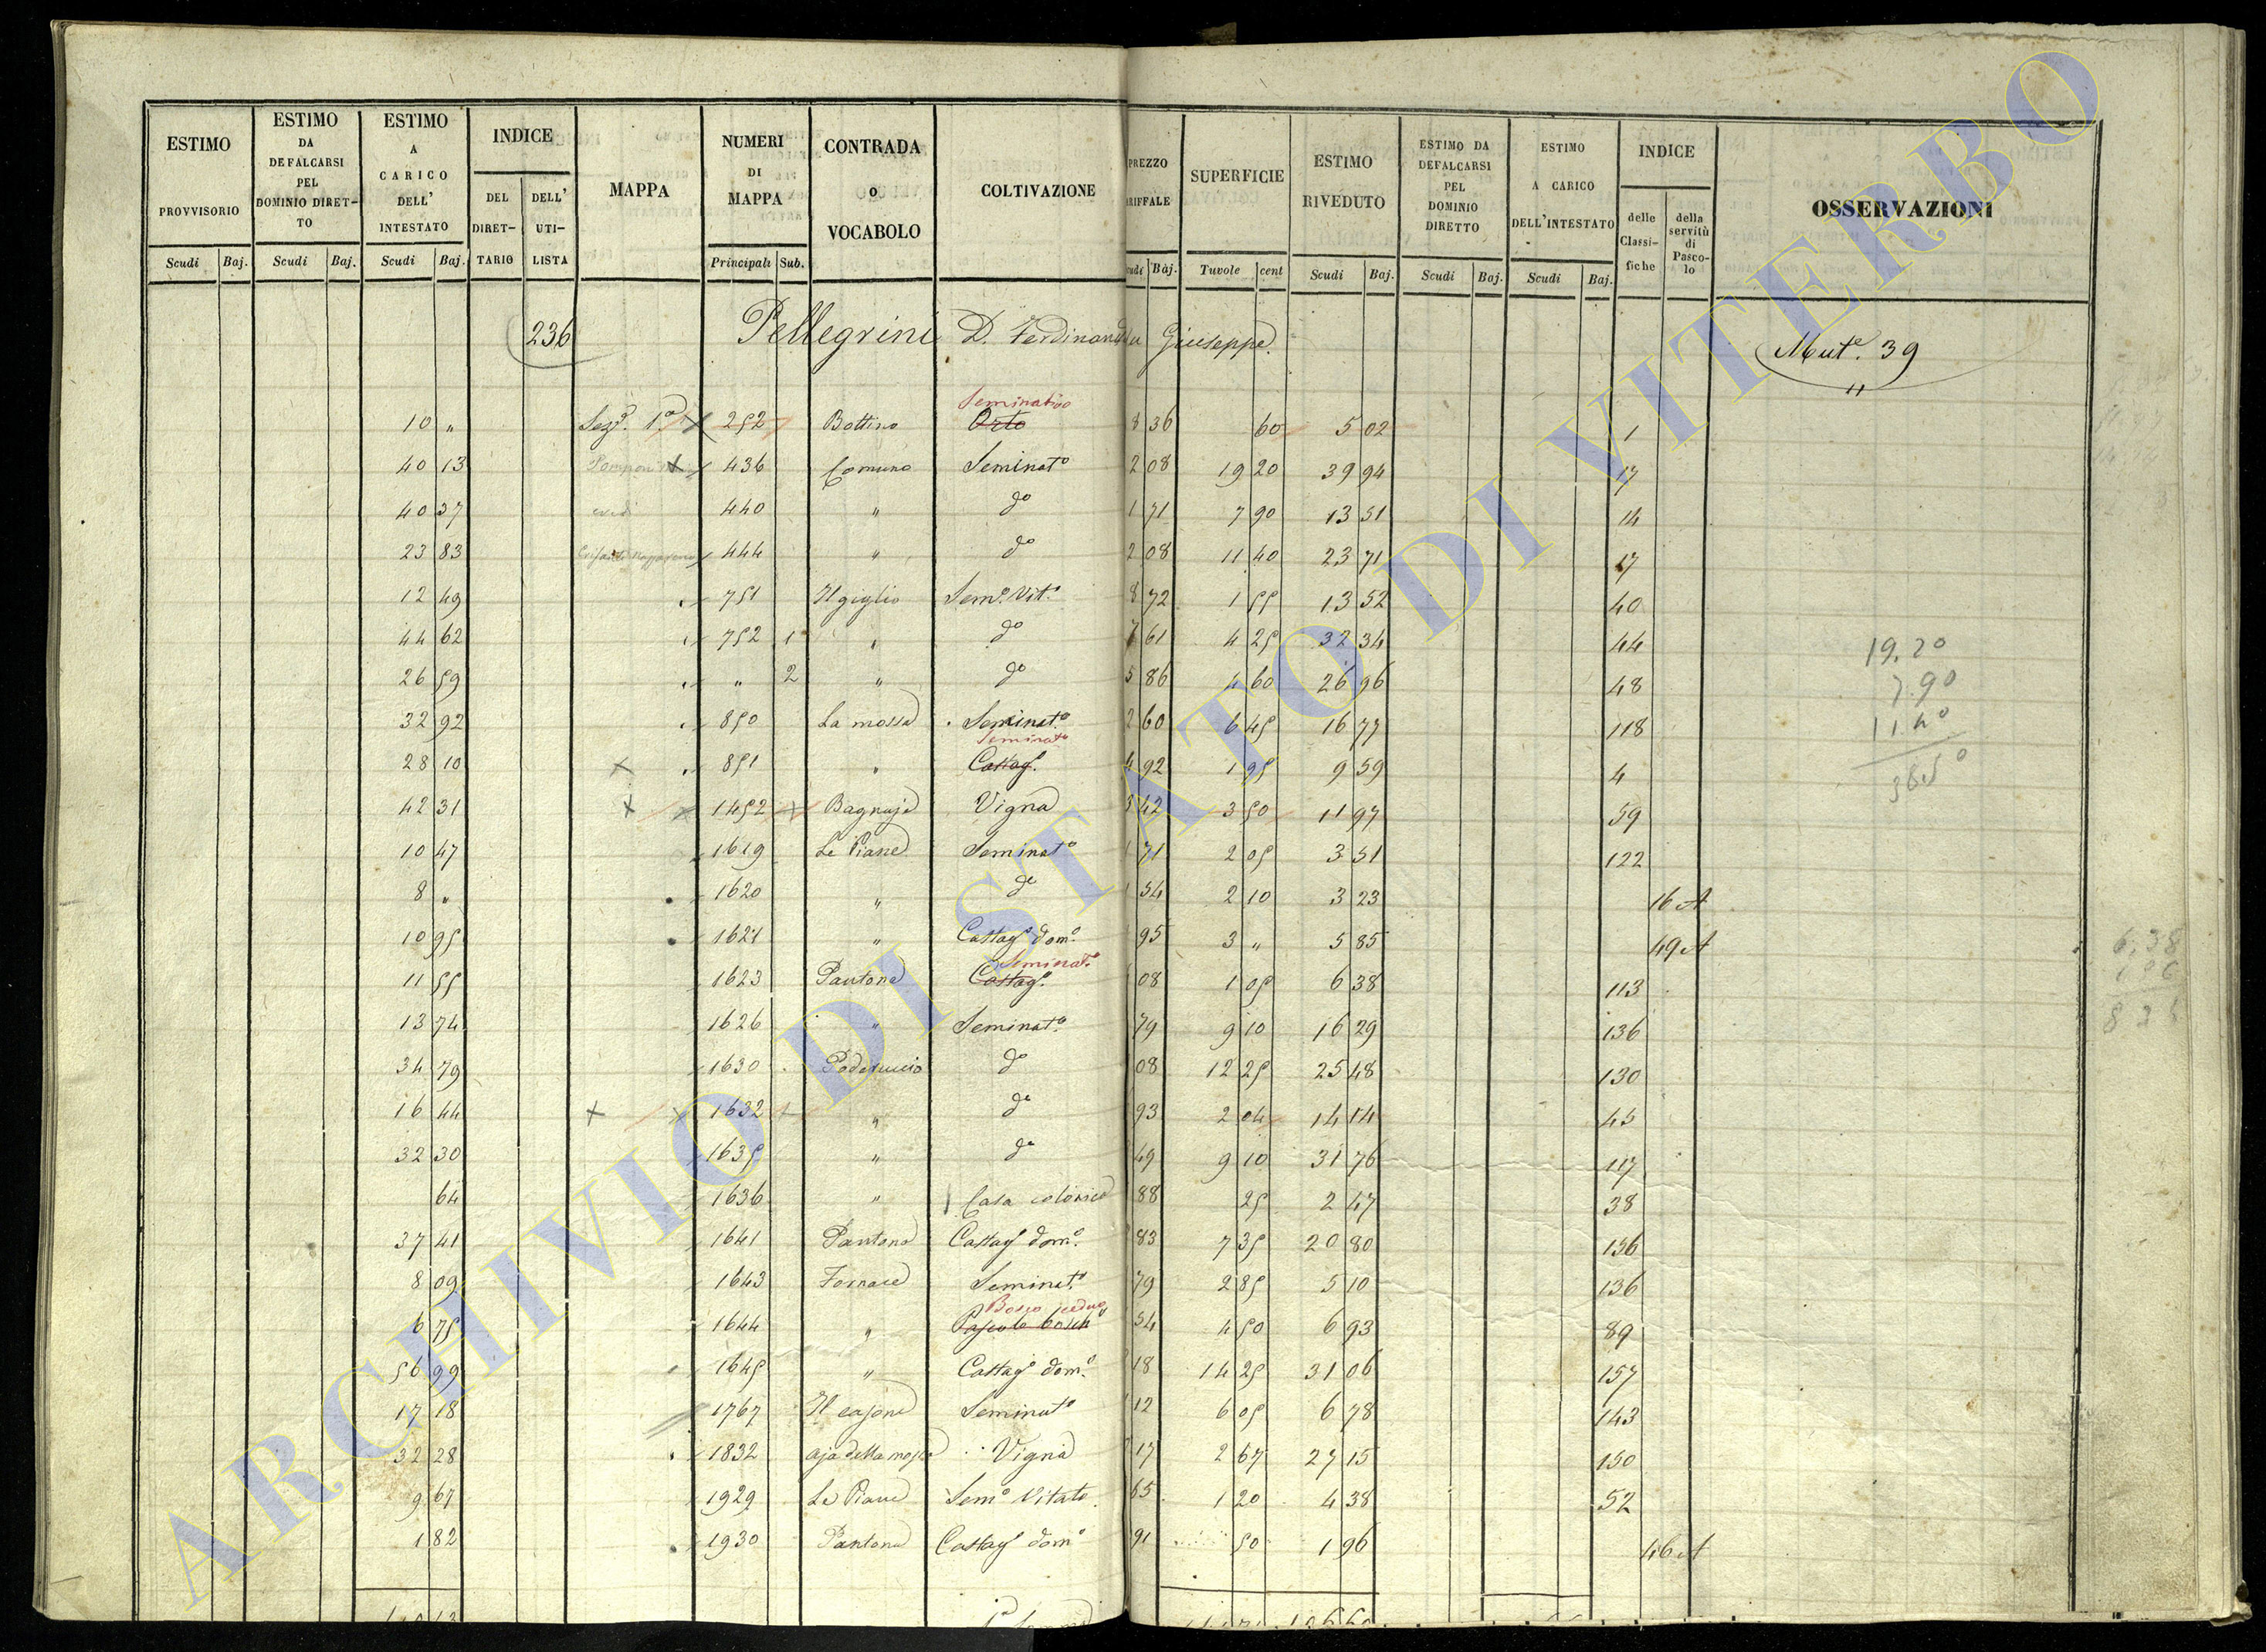 ESTIMO PROVVISORIO Scudi Baj.
ESTIMO DA DEFALCARSI PEL DOMINIO DIRETTO Scudi Baj.
ESTIMO A CARICO DELL' INTESTATO Scudi Baj.
INDICE DEL DIRETTARIO DELL' UTILISTA
MAPPA
NUMERI DI MAPPA Principali Sub.
CONTRADA O VOCABOLO
COLTIVAZIONE
PREZZO ARIFFALE udi Bàj.
SUPERFICIE Tavole cent
ESTIMO RIVEDUTO Scudi Baj.
ESTIMO DA DEFALCARSI PEL DOMINIO DIRETTO Scudi Baj.
ESTIMO A CARICO DELL'INTESTATO Scudi Baj.
INDICE delle Classifiche della servitù di Pascolo
OSSERVAZIONI
236 Pellegrini D. Ferdinando Giuseppe. Mut.e 39
Seminativo
10 " Sez.e 1a 252 Bottino Orto 8 36 60 5 02 1
40 13 436 Comune Seminato 2 08 19 20 39 94 17
40 37 440 " do 1 71 7 90 13 51 14
23 83 444 " do 2 08 11 40 23 71 17
12 49 751 Il giglio Semo. Vito. 8 72 1 55 13 52 40
44 62 752 1 " do 7 61 4 25 32 34 44
26 59 " 2 " do 5 86 4 60 26 96 48
32 92 850 La mossa Seminato 2 60 6 45 16 77 118
Seminato
28 10 851 " Castago. 4 92 1 95 9 59 4
42 31 1452 Bagnaja Vigna 3 42 3 50 11 97 59
10 47 1619 Le Piane Seminato 71 2 05 3 51 122
8 " 1620 " do 54 2 10 3 23 16 A
10 95 1621 " Castago domo. 95 3 " 5 85 49 A
Seminato.
11 55 1623 Pantane Castago. 08 1 05 6 38 113
13 74 1626 " Seminato. 79 9 10 16 29 136
34 79 1630 Poderuccio do 08 12 25 25 48 130
16 44 1632 " do 93 2 04 14 14 45
32 30 1635 " do 49 9 10 31 76 117
64 1636 " Casa colonica 88 25 2 47 38
37 41 1641 Pantane Castago domo. 83 7 35 20 80 156
8 09 1643 Fornace Seminato. 79 2 85 5 10 136
Bosco ceduo
6 75 1644 " Pascolo bosch 54 4 50 6 93 89
56 99 1645 " Castago domo. 18 14 25 31 06 157
17 18 1767 Seminato 12 6 05 6 78 143
32 28 1832 aja della mossa Vigna 17 2 67 27 15 150
9 67 1929 Le Piane Semo Vitato 65 1 20 4 38 52
1 82 1930 Pantane Castago domo 91 50 1 96 46 A
19.20
7.90
11.40
38.50
6.38
ARCHIVIO DI STATO DI VITERBO